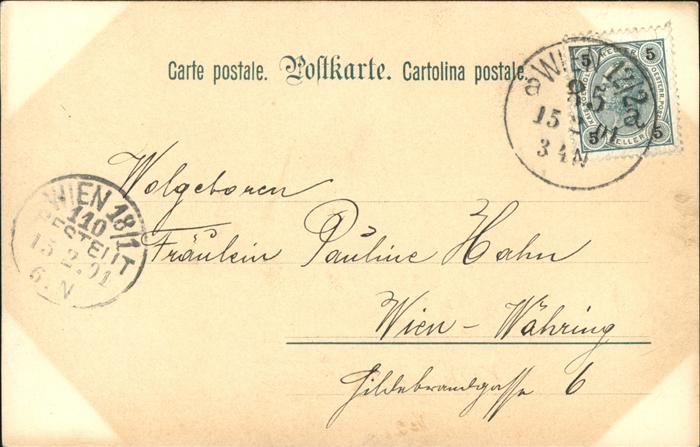 Carte postale. Postkarte. Cartolina postale.
WIEN 12/2a
15 2 01
3 4 N
5 5
5 5
WIEN 18/1
110
BESTELLT
15.2.01
6. N
Wolgeboren
Fräulein Pauline Hahn
Wien - Währing
Hildebrandgasse 6